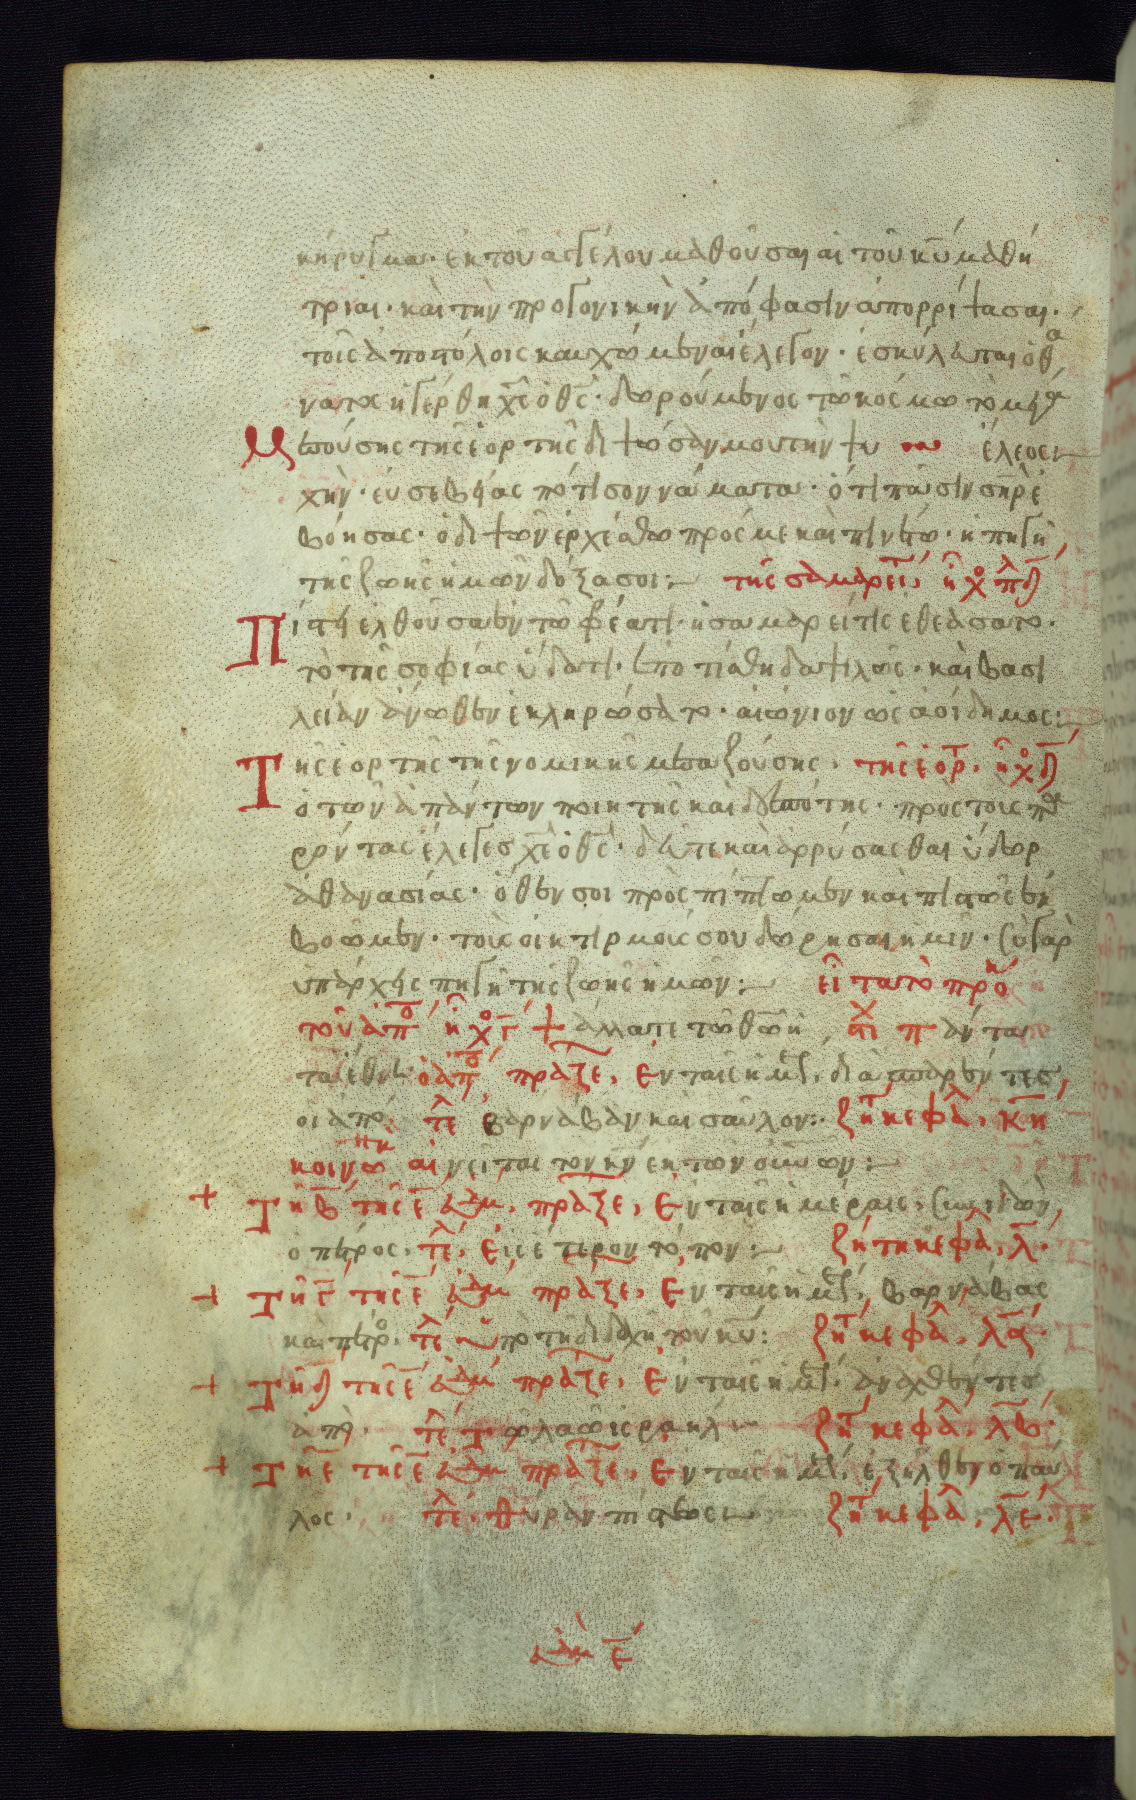 κήρυγμα· ἐκ τοῦ ἀγγέλου μαθοῦσαι αἱ τοῦ κ̅υ̅ μαθή
τριαι· καὶ τὴν προγονικὴν ἀπόφασιν ἀπορρίψασαι·
τοῖς ἀποστόλοις καυχώμεναι ἔλεγον· ἐσκύλευται ὁ θά
νατος ἠγέρθη χ̅ς̅ ὁ θ̅ς̅· δωρούμενος τῶ κόσμω τὸ μέγα
Μεσούσης τῆς ἑορτῆς διψῶσάν μου τὴν ψυ ἔλεος:
χὴν· εὐσεβείας πότισον νάματα· ὅτι πᾶσιν σ̅η̅ρ̅ ἐ
βόησας· ὁ διψῶν ἐρχέσθω πρός με καὶ πινέτω· ἡ πηγὴ
τῆς ζωῆς ἡμῶν δόξα σοι: τῆς σαμαρεί, ἦχο πλ δ
Πίστει ἐλθοῦσα ἐν τῶ φρέατι· ἡ σαμαρείτις ἐθεάσατο·
τὸ τῆς σοφίας ὕδατι· ἐποτίσθη δαψιλῶς· καὶ βασι
λείαν ἄνωθεν ἐκληρώσατο· αἰώνιον ὡς ἀοίδημος:
Τῆς ἑορτῆς τῆς νομικῆς μεσαζούσης· τῆς ἑορτ· ἦχ δ
ὁ τῶν ἁπάντων ποιητῆς καὶ δεσπότης· προς τοις πα
ρόντας ἔλεγες χ̅ε̅ ὁ θ̅ς̅· δεῦτε καὶ ἀρρύσασθαι ὕδωρ
ἀθανασίας· ὅθεν σοι προσπίπτωμεν καὶ πιστῶς ἐκ
βοῶμεν· τοὺς οἰκτιρμούς σου δώρησαι ἡμῖν· σὺ γὰρ
υπάρχεις πηγὴ τῆς ζωῆς ἡμῶν: εἶτα τὸ προκ
τοῦ ἀπο ἦχο γ ψάλλατε τῶ θ̅ω̅ ἡ στι χ πάντα
τὰ ἔθνη ὁ ἀπο πράξε, Εν ταῖς ἡμ, διασπαρέντες
οι ἀπο. τε βαρνάβαν καὶ σαῦλον: ζητ κεφα, κη
κοινων αἰνεῖται τὸν κ̅ν̅ ἐκ τῶν οὐνῶν:
Τῆ β τῆς ε ἑβδμ, πράξε, Εν ταῖς ἡμέραις, ἰδὼν
ο πέτρος, τε, εἰς ἕτερον τόπον: ζήτη κεφα, λ
Τῆ γ τῆς ε ἑβδμ πράξε, Εν ταῖς ἡμ, βαρνάβας
καὶ πέτρο. τε ἐπὶ τη διδαχῆ τοῦ κ̅υ̅: ζητ κεφα, λα
Τῆ δ τῆς ε ἑβδμ πράξε, Εν ταῖς ἡμ, ἀναχθέντες
ἀπὸ. τε τῶ λαῶ ισραηλ ζητ κεφα, λβ
Τῆ ε τῆς ε ἑβδμ πράξε, Εν ταῖς ἡμ, ἐξῆλθεν ὁ παῦ
λος. τε. θύραν πίστεως ζητ κεφα, λε
ἑβδμ ε